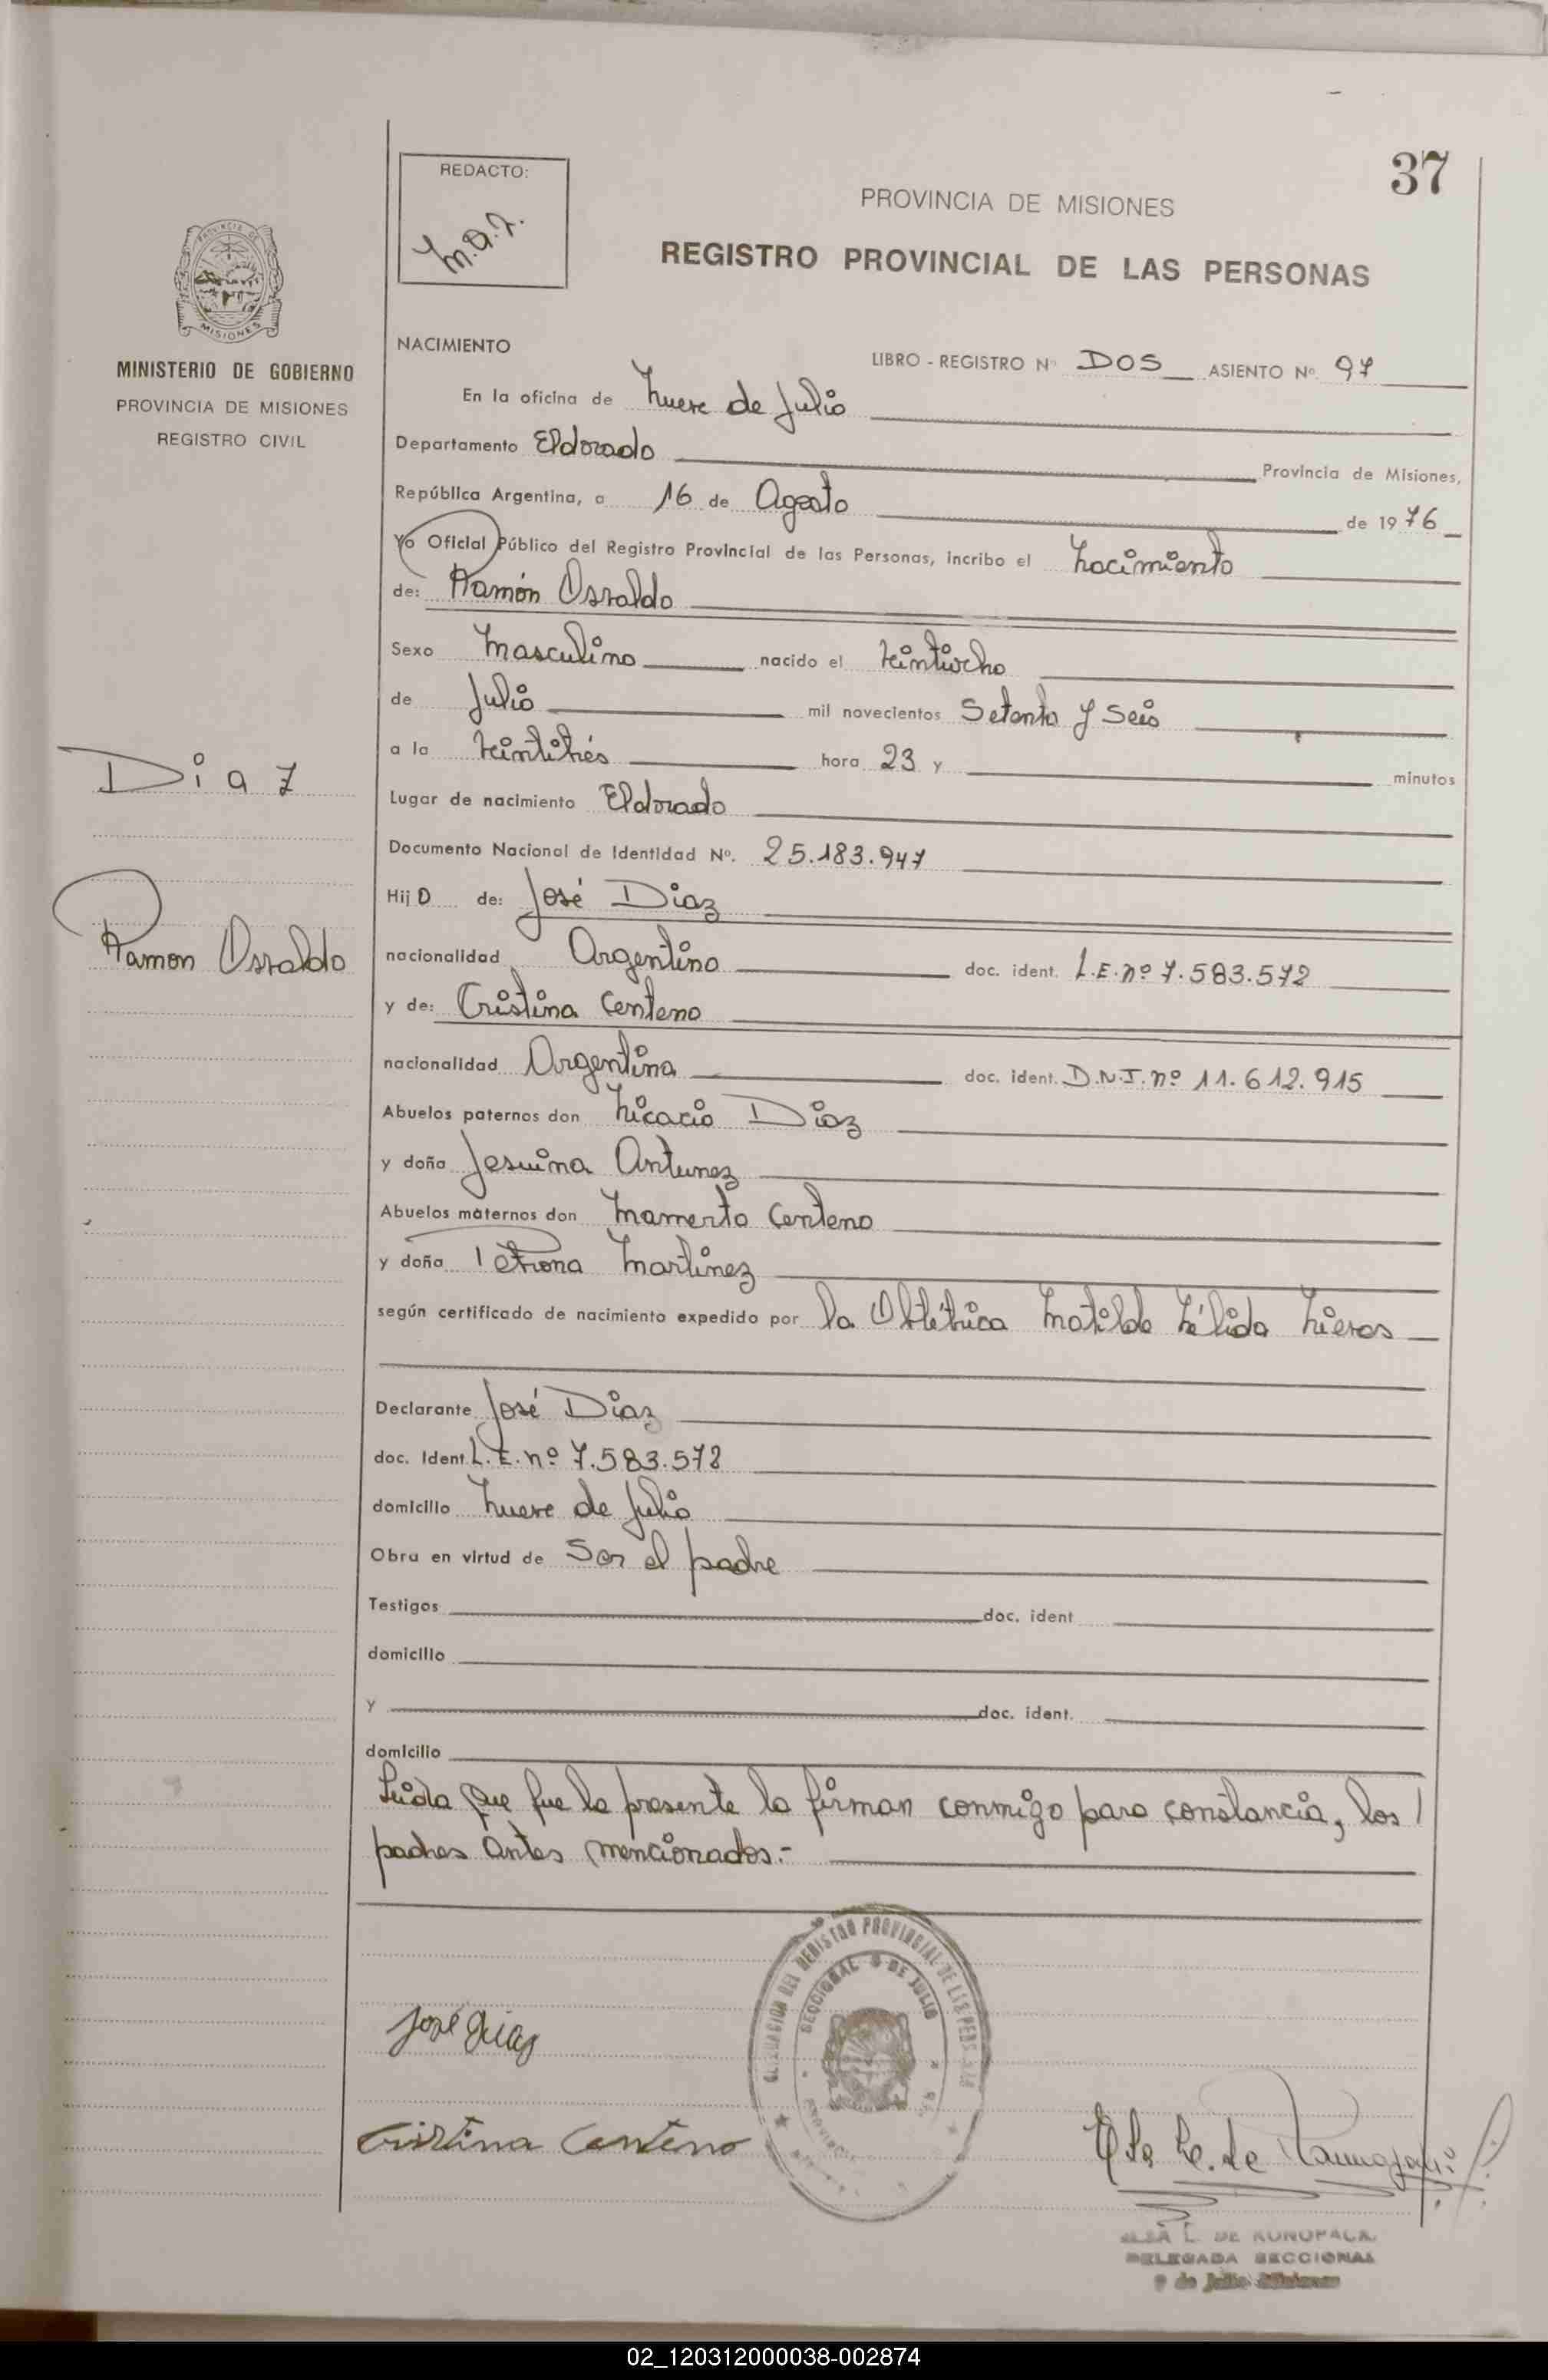 37
REDACTO:
PROVINCIA DE MISIONES
REGISTRO PROVINCIAL DE LAS PERSONAS
PROVINCIA DE
MISIONES
MINISTERIO DE GOBIERNO
PROVINCIA DE MISIONES
REGISTRO CIVIL
Diaz
Ramon Osvaldo
NACIMIENTO
LIBRO - REGISTRO Nº DOS ASIENTO Nº 97
En la oficina de Nueve de Julio
Departamento Eldorado Provincia de Misiones,
República Argentina, a 16 de Agosto de 1976
Yo Oficial Público del Registro Provincial de las Personas, incribo el Nacimiento
de: Ramón Osvaldo
Sexo Masculino nacido el Veintiocho
de Julio mil novecientos Setenta y Seis
a la Veintitrés hora 23 y minutos
Lugar de nacimiento Eldorado
Documento Nacional de Identidad Nº. 25.183.947
Hijo de: José Diaz
nacionalidad Argentino doc. ident. L.E. nº 7.583.572
y de: Cristina Centeno
nacionalidad Argentina doc. ident. D.N.I. nº 11.612.915
Abuelos paternos don Nicacio Diaz
y doña Jesuina Antunez
Abuelos maternos don Mamerto Centeno
y doña Petrona Martinez
según certificado de nacimiento expedido por la Obstétrica Matilde Nélida Nieves
Declarante José Diaz
doc. Ident. L.E. nº 7.583.572
domicilio Nueve de Julio
Obra en virtud de Ser el padre
Testigos doc. ident
domicilio
y doc. ident.
domicilio
Leida que fue la presente la firman conmigo para constancia, los
padres antes mencionados.-
José Diaz
Cristina Centeno
SECCIONAL 9 DE JULIO
DELEGADA SECCIONAL
9 de Julio Misiones
02_120312000038-002874